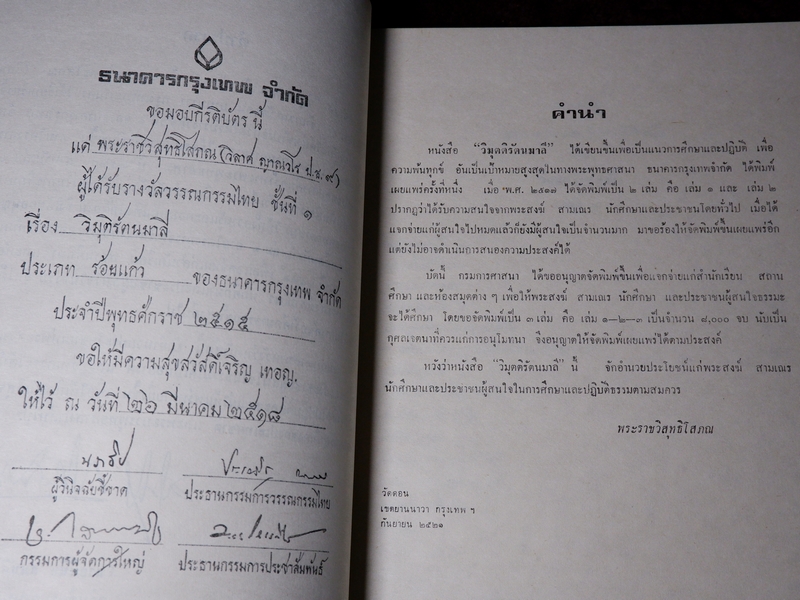 ธนาคารกรุงเทพ จำกัด
ขอมอบกีรติบัตร นี้
แด่ พระราชวิสุทธิโสภณ (วิลาศ ญาณวโร ป.ธ.๙)
ผู้ได้รับรางวัลวรรณกรรมไทย ชั้นที่ ๑
เรื่อง วิมุติรัตนมาลี
ประเภท ร้อยแก้ว ของธนาคารกรุงเทพ จำกัด
ประจำปีพุทธศักราช ๒๕๑๕
ขอให้มีความสุขสวัสดิ์เจริญ เทอญ.
ให้ไว้ ณ วันที่ ๒๖ มีนาคม ๒๕๑๘
ผู้วินิจฉัยชี้ขาด ประธานกรรมการวรรณกรรมไทย
กรรมการผู้จัดการใหญ่ ประธานกรรมการประชาสัมพันธ์
คำนำ
หนังสือ “วิมุตติรัตนมาลี” ได้เขียนขึ้นเพื่อเป็นแนวการศึกษาและปฏิบัติ เพื่อ
ความพ้นทุกข์ อันเป็นเป้าหมายสูงสุดในทางพระพุทธศาสนา ธนาคารกรุงเทพจำกัด ได้พิมพ์
เผยแพร่ครั้งที่หนึ่ง เมื่อ พ.ศ. ๒๕๑๗ ได้จัดพิมพ์เป็น ๒ เล่ม คือ เล่ม ๑ และ เล่ม ๒
ปรากฏว่าได้รับความสนใจจากพระสงฆ์ สามเณร นักศึกษาและประชาชนโดยทั่วไป เมื่อได้
แจกจ่ายแก่ผู้สนใจไปหมดแล้วก็ยังมีผู้สนใจเป็นจำนวนมาก มาขอร้องให้จัดพิมพ์ขึ้นเผยแพร่อีก
แต่ยังไม่อาจดำเนินการสนองความประสงค์ได้
บัดนี้ กรมการศาสนา ได้ขออนุญาตจัดพิมพ์ขึ้นเพื่อแจกจ่ายแก่สำนักเรียน สถาน
ศึกษา และห้องสมุดต่าง ๆ เพื่อให้พระสงฆ์ สามเณร นักศึกษา และประชาชนผู้สนใจธรรมะ
จะได้ศึกษา โดยขอจัดพิมพ์เป็น ๓ เล่ม คือ เล่ม ๑—๒—๓ เป็นจำนวน ๘,๐๐๐ จบ นับเป็น
กุศลเจตนาที่ควรแก่การอนุโมทนา จึงอนุญาตให้จัดพิมพ์เผยแพร่ได้ตามประสงค์
หวังว่าหนังสือ “วิมุตติรัตนมาลี” นี้ จักอำนวยประโยชน์แก่พระสงฆ์ สามเณร
นักศึกษาและประชาชนผู้สนใจในการศึกษาและปฏิบัติธรรมตามสมควร
พระราชวิสุทธิโสภณ
วัดดอน
เขตยานนาวา กรุงเทพ ฯ
กันยายน ๒๕๒๑